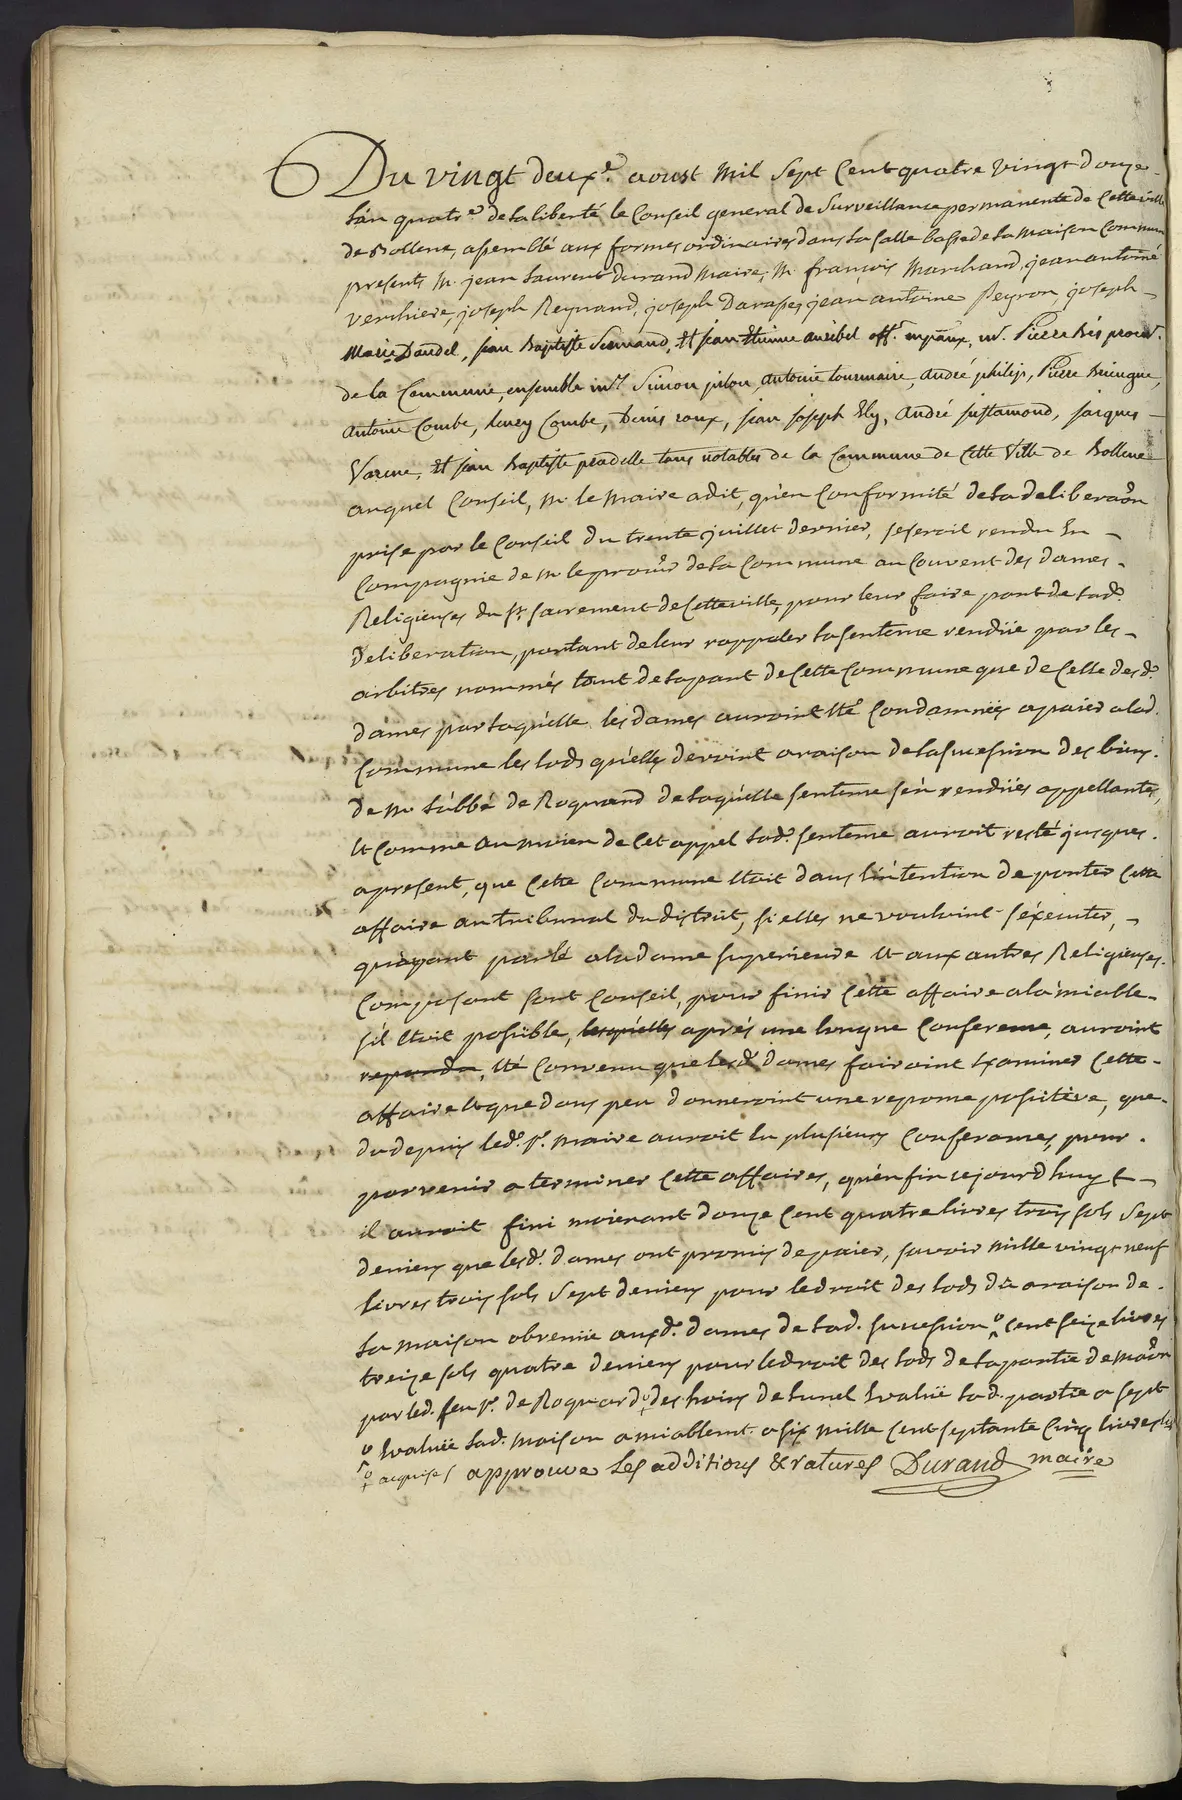 Du vingt deuxe. aoust mil sept Cent quatre vingt douze
L'an quatre. de la liberté le Conseil general de Surveillance permanente de Cette ville
de Bollene, assemblé aux formes ordinaires dans la salle basse de la maison Commune
presents Mr. jean Laurent durand Maire, Mr. françois Marchand, jean antoine
Verchiere, joseph Reynaud, joseph Darasse, jean antoine Peyron, joseph
Marie Daudel, jean Baptiste Sermand, Et jean Etienne auribel offrs. mpaux, Mr. Pierre Bès procur.
de la Commune, ensemble mrs Simon pilou, antoine tourniaire, andré philip, Pierre Bringue,
antoine Combe, henry Combe, Denis roux, jean joseph Ely, andré justamond, jacques
Varene, Et jean Baptiste pradelle tous notables de la Commune de Cette Ville de Bollene
auquel Conseil, Mr le Maire a dit, qu'en Conformité de la deliberaõn
prise par le Conseil du trente juillet dernier, se seroit rendu En
Compagnie de Mr le procur de la Commune au Couvent des dames
Religieuses du St. sacrement de Cette ville, pour leur faire part de lad.
Deliberation, portant de leur rappeler la sentence rendüe par les
arbitres nommés tant de la part de Cette Commune que de Celle desd.
dames par laqu'elle les dames auroint Eté Condamnées a paier a lad.
Commune les lods qu'elles devoint a raison de la succession des biens
de Mr L'abbé de Roquard de laqu'elle sentence s'en rendües appellantes,
Et Comme au moien de Cet appel lad. sentence auroit resté jusques
a present, que Cette Commune Etoit dans l'intention de porter Cette
affaire au tribunal du district, si elles ne vouloint s'éxecuter,
qu'ayant parlé a la dame superieure Et aux autres Religieuses
Composant sont Conseil, pour finir Cette affaire a la'miable
s'il Etoit possible, lesqu'elles aprés une longue Conference, auroint
repondu, Eté Convenu que lesd. dames fairoint Examiner Cette
affaire Et que dans peu donneroint une reponse positive, que
du depuis led. sr. Maire auroit Eu plusieurs Conferences, pour
parvenir a terminer Cette affaires, qu'en fin cejourd'huy
il auroit fini moienant douze Cent quatre livres trois sols sept
deniers que lesd. dames ont promis de paier, savoir mille vingt neuf
livres trois sols sept deniers pour le droit des lods dû a raison de
la maison obvenüe auxd. dames de lad. succession Cent seize livres
treize sols quatre deniers pour le droit des lods de la partie de maõn
par led. feu sr. de Roquard des hoirs de Lunel Evalué lad. partie a sept
Evalüée lad. maison amiablemt. a six mille Cent septante Cinq livres
acquises approuve les additions & ratures Durand maire